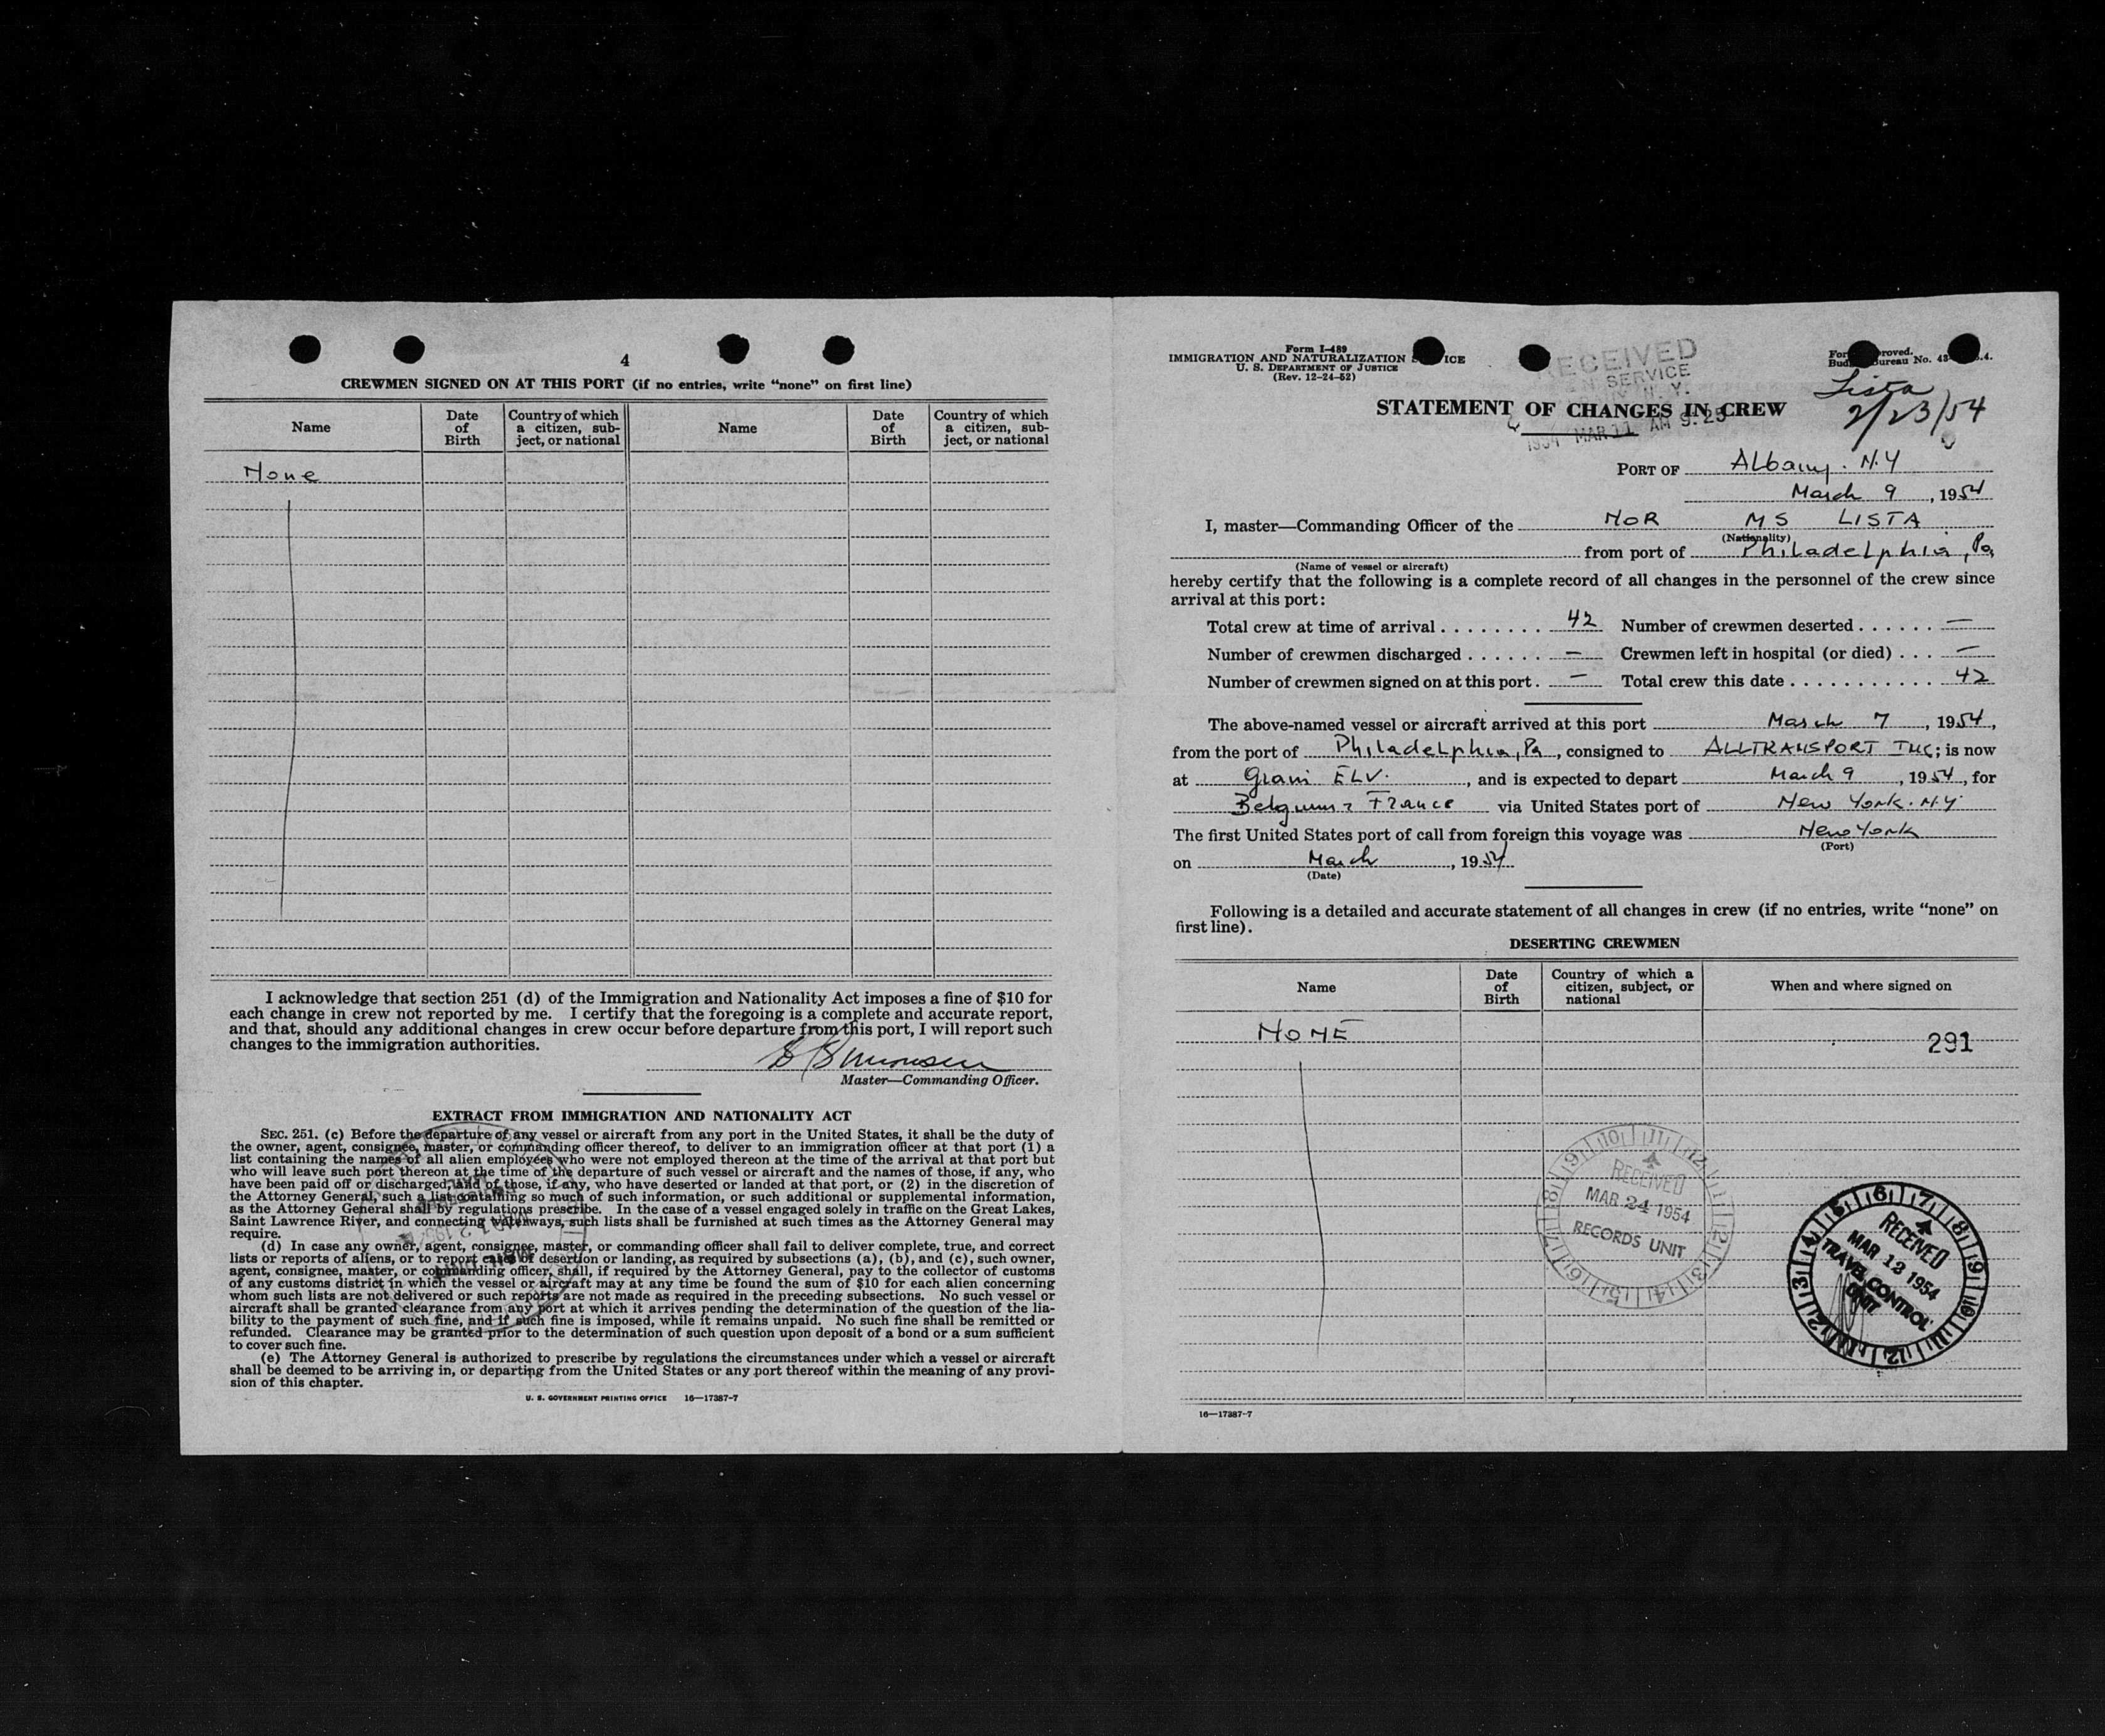 4
CREWMEN SIGNED ON AT THIS PORT (if no entries, write “none” on first line)
Name
Date of Birth
Country of which a citizen, subject, or national
Name
Date of Birth
Country of which a citizen, subject, or national
None
I acknowledge that section 251 (d) of the Immigration and Nationality Act imposes a fine of $10 for
each change in crew not reported by me. I certify that the foregoing is a complete and accurate report,
and that, should any additional changes in crew occur before departure from this port, I will report such
changes to the immigration authorities.
Master—Commanding Officer.
EXTRACT FROM IMMIGRATION AND NATIONALITY ACT
SEC. 251. (c) Before the departure of any vessel or aircraft from any port in the United States, it shall be the duty of
the owner, agent, consignee, master, or commanding officer thereof, to deliver to an immigration officer at that port (1) a
list containing the names of all alien employees who were not employed thereon at the time of the arrival at that port but
who will leave such port thereon at the time of the departure of such vessel or aircraft and the names of those, if any, who
have been paid off or discharged, and of those, if any, who have deserted or landed at that port, or (2) in the discretion of
the Attorney General, such a list containing so much of such information, or such additional or supplemental information,
as the Attorney General shall by regulations prescribe. In the case of a vessel engaged solely in traffic on the Great Lakes,
Saint Lawrence River, and connecting waterways, such lists shall be furnished at such times as the Attorney General may
require.
(d) In case any owner, agent, consignee, master, or commanding officer shall fail to deliver complete, true, and correct
lists or reports of aliens, or to report cases of desertion or landing, as required by subsections (a), (b), and (c), such owner,
agent, consignee, master, or commanding officer, shall, if required by the Attorney General, pay to the collector of customs
of any customs district in which the vessel or aircraft may at any time be found the sum of $10 for each alien concerning
whom such lists are not delivered or such reports are not made as required in the preceding subsections. No such vessel or
aircraft shall be granted clearance from any port at which it arrives pending the determination of the question of the lia-
bility to the payment of such fine, and if such fine is imposed, while it remains unpaid. No such fine shall be remitted or
refunded. Clearance may be granted prior to the determination of such question upon deposit of a bond or a sum sufficient
to cover such fine.
(e) The Attorney General is authorized to prescribe by regulations the circumstances under which a vessel or aircraft
shall be deemed to be arriving in, or departing from the United States or any port thereof within the meaning of any provi-
sion of this chapter.
U. S. GOVERNMENT PRINTING OFFICE 16—17387-7
Form I-489
IMMIGRATION AND NATURALIZATION ICE
U. S. DEPARTMENT OF JUSTICE
(Rev. 12-24-52)
RECEIVED
SERVICE
N. Y.
1954 MAR 11 AM 9:25
Lista
2/23/54
STATEMENT OF CHANGES IN CREW
PORT OF Albany. N.Y
March 9, 1954
I, master—Commanding Officer of the NOR MS LISTA
(Nationality)
from port of Philadelphia, Pa,
(Name of vessel or aircraft)
hereby certify that the following is a complete record of all changes in the personnel of the crew since
arrival at this port:
Total crew at time of arrival . . . . . . . . 42 Number of crewmen deserted . . . . . . —
Number of crewmen discharged . . . . . . — Crewmen left in hospital (or died) . . . —
Number of crewmen signed on at this port. — Total crew this date . . . . . . . . . . . 42
The above-named vessel or aircraft arrived at this port March 7, 1954,
from the port of Philadelphia, Pa, consigned to ALLTRANSPORT INC; is now
at Grain ELV., and is expected to depart March 9, 1954, for
Belgium & France via United States port of New York. N.Y.
The first United States port of call from foreign this voyage was New York
(Port)
on March, 1954
(Date)
Following is a detailed and accurate statement of all changes in crew (if no entries, write “none” on
first line).
DESERTING CREWMEN
Name
Date of Birth
Country of which a citizen, subject, or national
When and where signed on
NONE
291
RECEIVED
MAR 24 1954
RECORDS UNIT
RECEIVED
MAR 12 1954
TRAVEL CONTROL
UNIT
16—17387-7